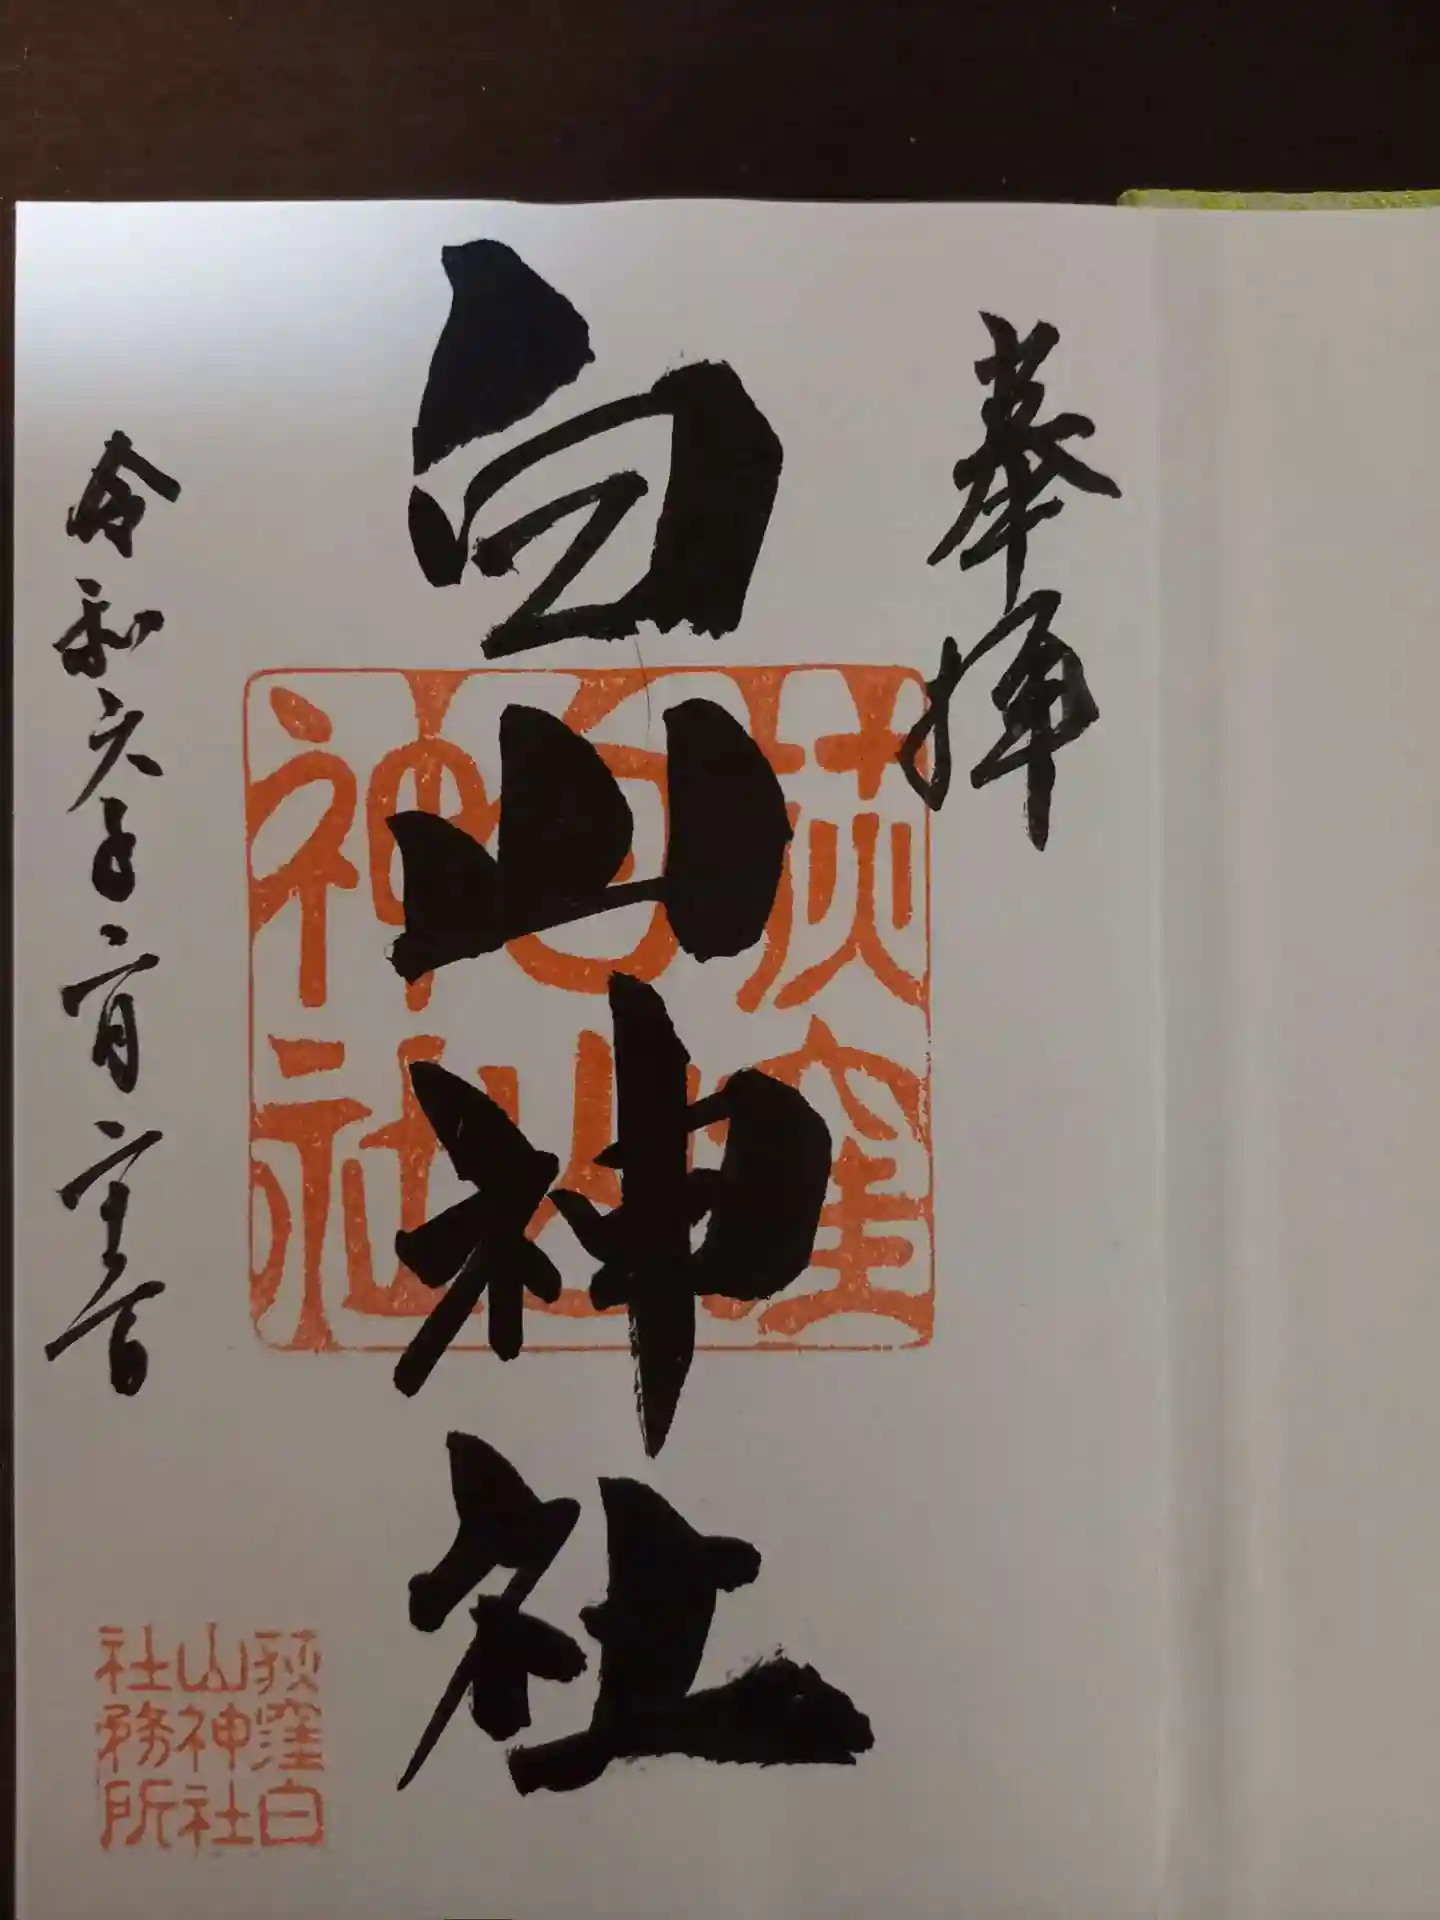 奉拝
白山神社
荻窪
白山
神社
令和六年二月
荻窪白
山神社
社務所